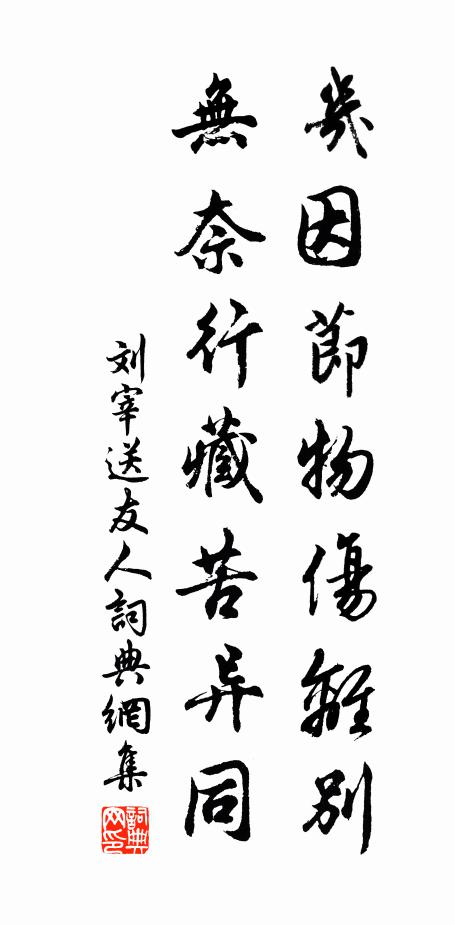 幾因節物傷離別
無奈行藏苦异同
刘宰送友人詞典網集
詞典網印